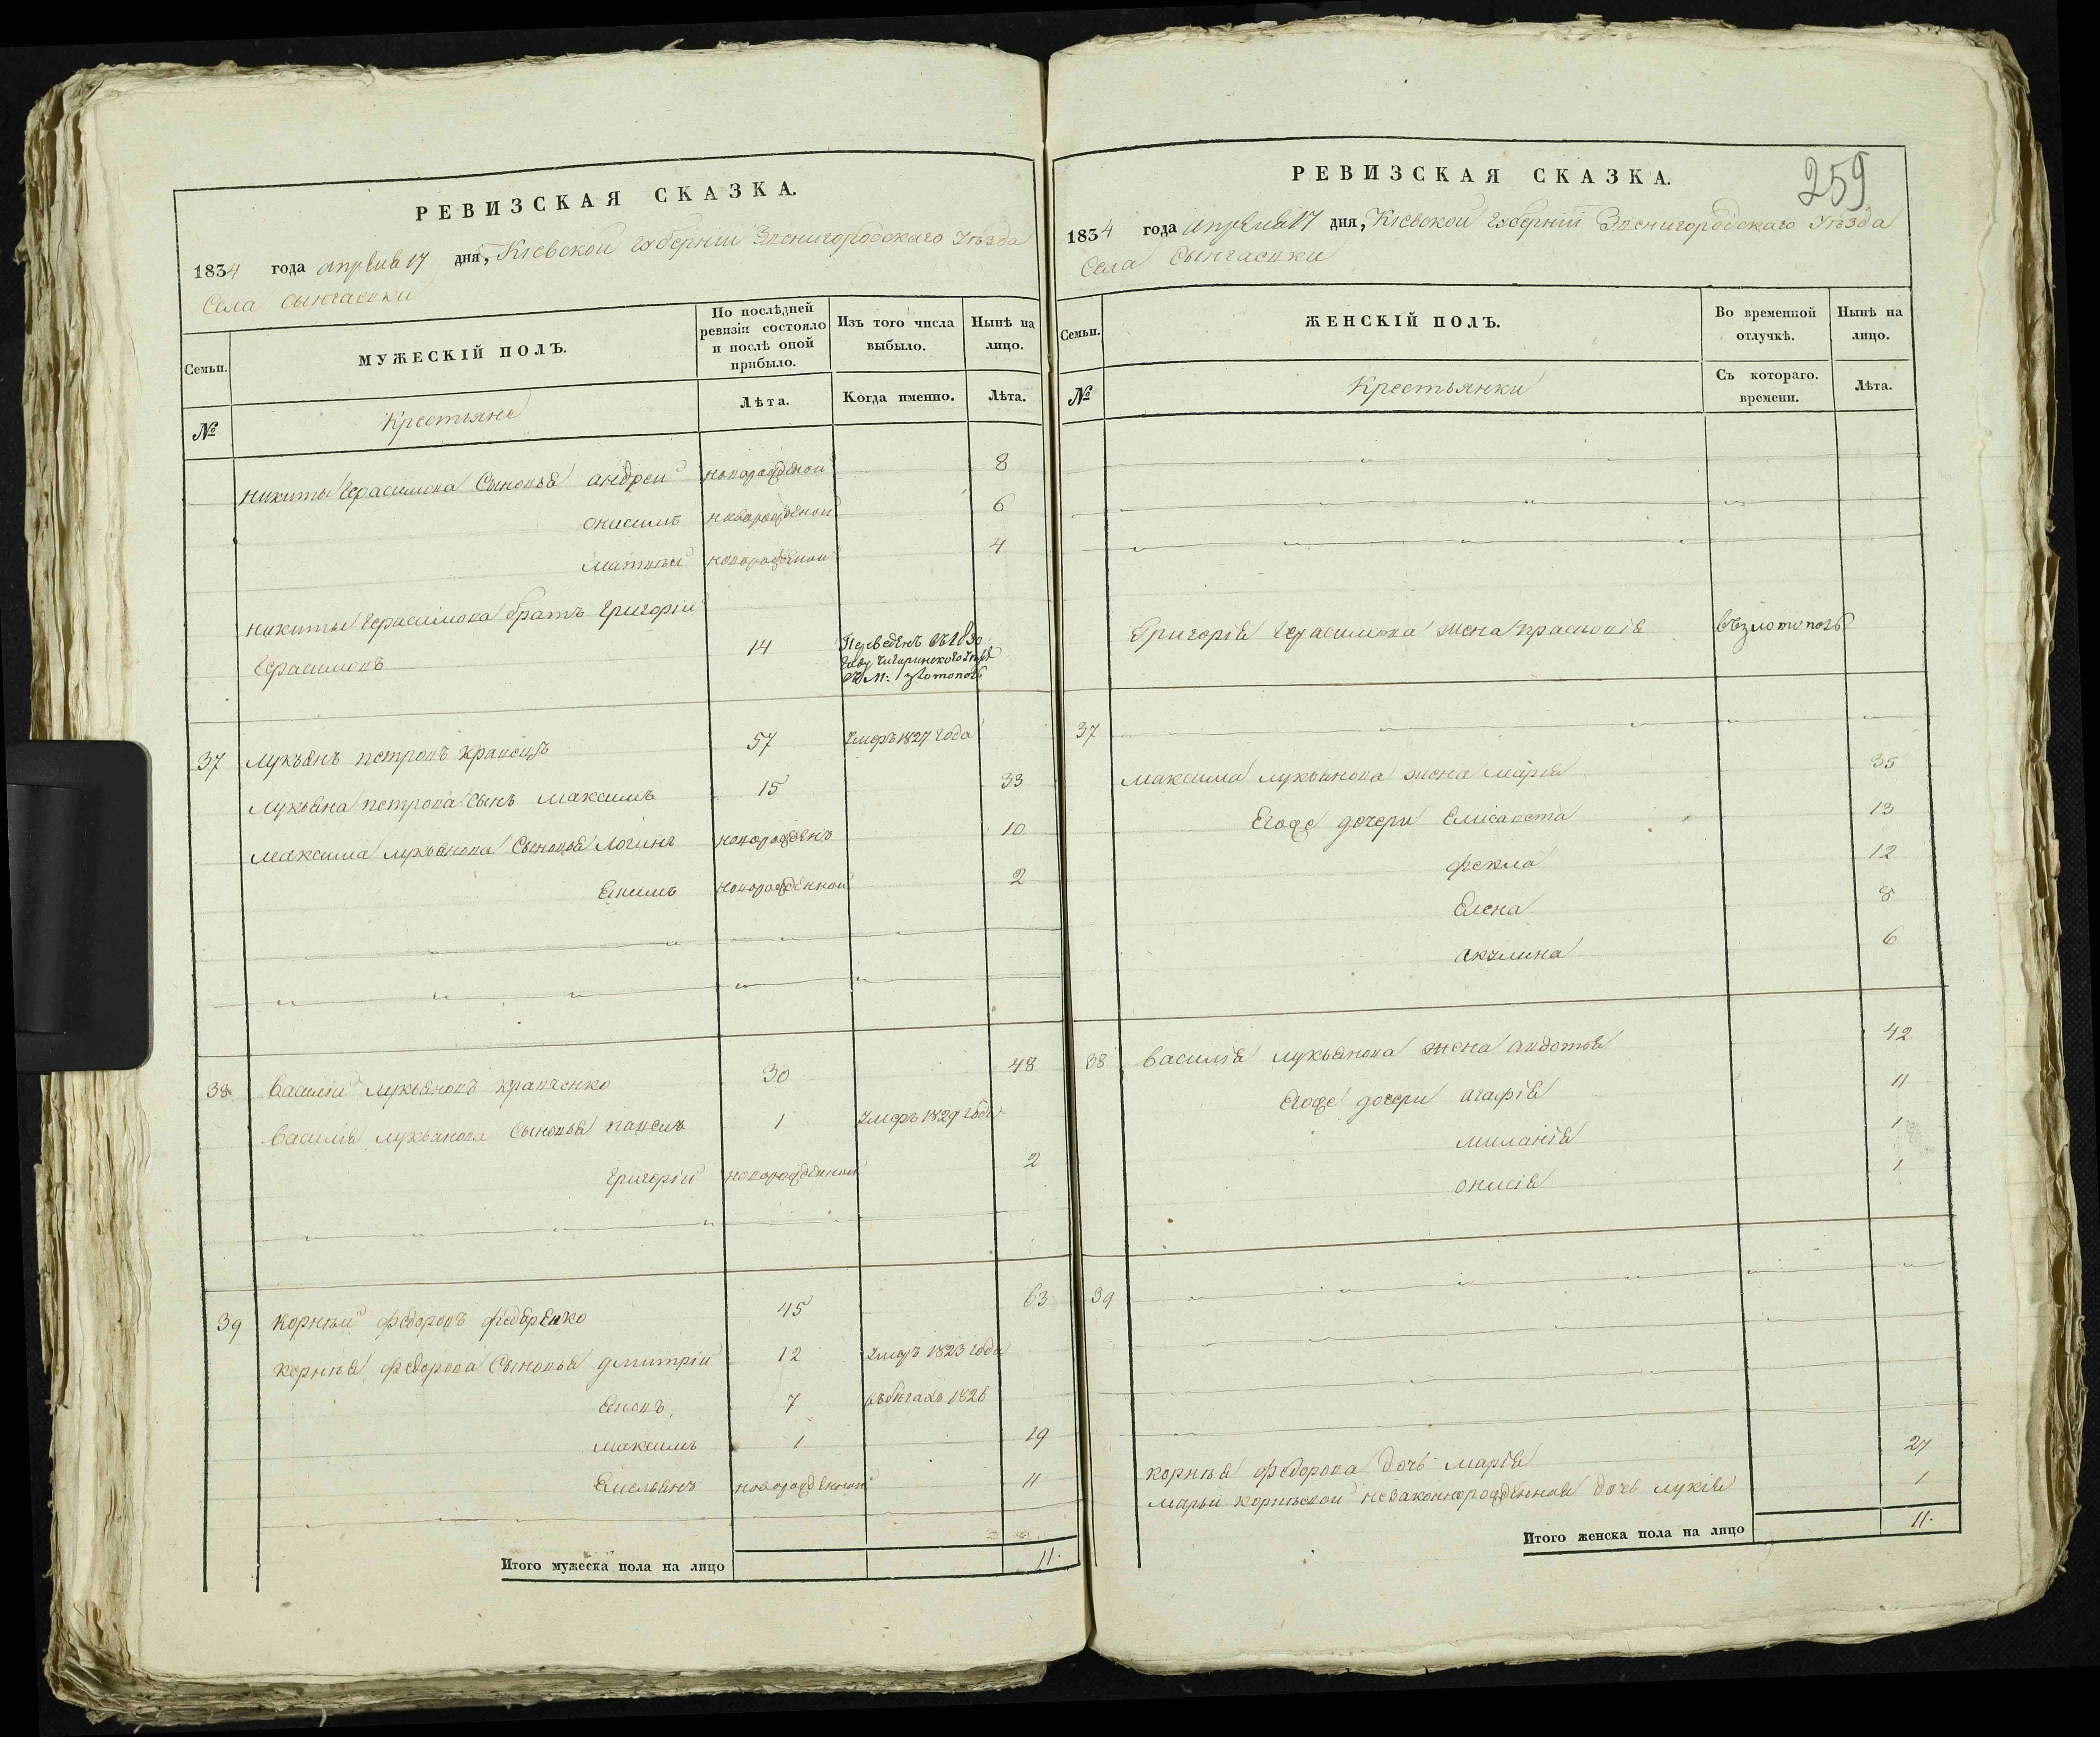 РЕВИЗСКАЯ СКАЗКА.
1834 года апреля 17 дня, Кіевской губерніи Звенигородскаго уѣзда
Села
Семьи. МУЖЕСКІЙ ПОЛЪ. По послѣдней ревизіи состояло и послѣ оной прибыло. Изъ того числа выбыло. Нынѣ на лицо.
№ Крестьяне Лѣта. Когда именно. Лѣта.
никиты Герасимова Сыновья андреи новорожденои 8
онисимъ новорожденои 6
матвѣи новорожденои 4
никиты Герасимова братъ григоріи
Герасимовъ 14 Переведенъ въ 1830
году Чигиринского уезда
въ м: златополь
37 лукьянъ петровъ кравецъ 57 умеръ 1827 года
лукьяна петрова сынъ максимъ 15 33
максима лукьянова Сыновья логинъ новорожденъ 10
Екимъ новорожденнои 2
38 василіи лукьяновъ кравченко 30 48
василія лукьянова Сыновья павелъ 1 умеръ 1829 года
григоріи новорожденнои 2
39 корнѣи федоровъ федоренко 45 63
корнѣя федорова Сыновья дмитріи 12 умеръ 1823 года
7 въ бѣгахъ 1826
максимъ 1 19
Емельянъ новорожденнои 11
Итого мужеска пола на лицо 11.
259
РЕВИЗСКАЯ СКАЗКА.
1834 года апреля 17 дня, Кіевской губерніи Звенигородскаго уѣзда
Села
Семьи. ЖЕНСКІЙ ПОЛЪ. Во временной отлучкѣ. Нынѣ на лицо.
№ Крестьянки Съ котораго. времени. Лѣта.
Григорія Герасимова жена прасковія въ златополь
37
максима лукьянова жена марія 35
Егоже дочери Елисавета 13
фекла 12
Елена 8
акулина 6
38 василія лукьянова жена авдотья 42
Егоже дочери агафія 11
миланія 1
онисія 1
39
корнѣя федорова дочь марія 27
марьи корнѣевои незаконнорожденная дочь лукія 1
Итого женска пола на лицо 11.